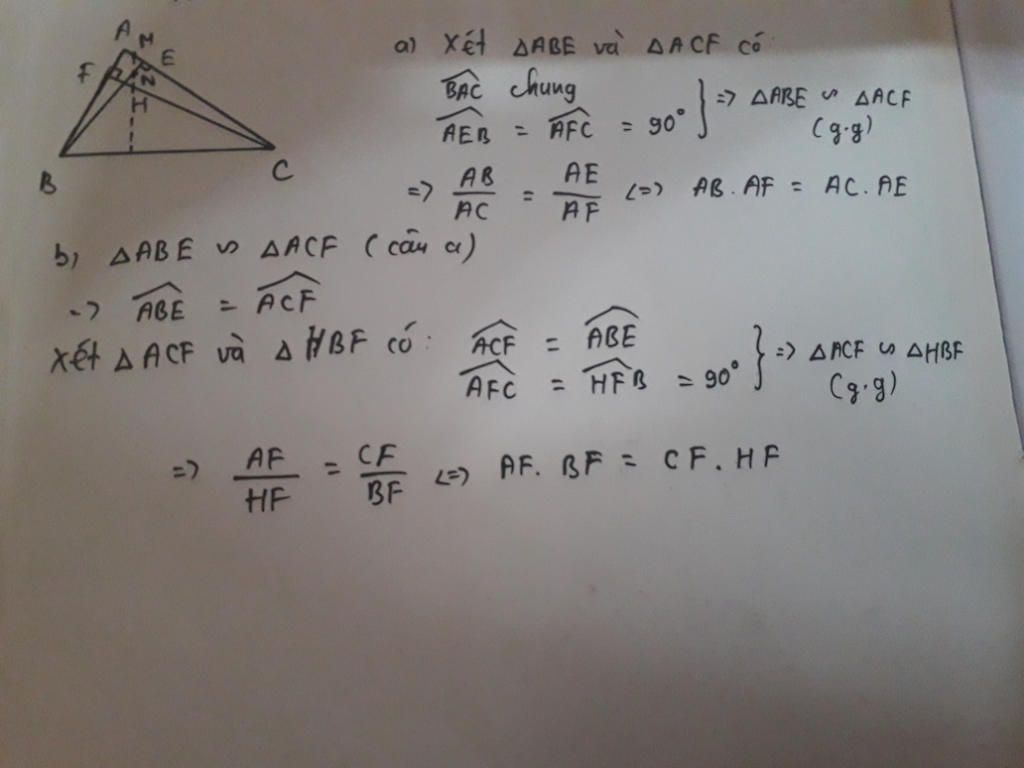 A M
F E
N
H
B C
a) Xét ΔABE và ΔACF có
BAC chung
AEB = AFC = 90° } => ΔABE ∽ ΔACF
(g.g)
=> AB/AC = AE/AF <=> AB.AF = AC.AE
b) ΔABE ∽ ΔACF (câu a)
=> ABE = ACF
Xét ΔACF và ΔHBF có: ACF = ABE
AFC = HFB = 90° } => ΔACF ∽ ΔHBF
(g.g)
=> AF/HF = CF/BF <=> AF.BF = CF.HF